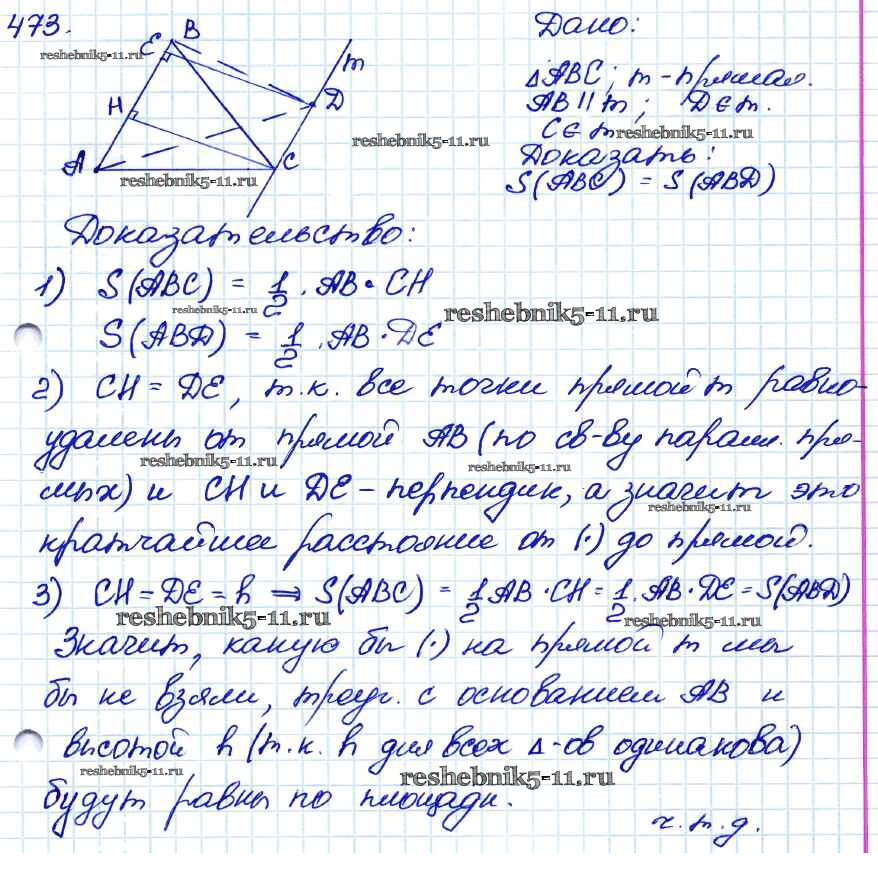 473.
Дано:
△ABC; m - прямая.
AB || m; D ∈ m.
C ∈ m
Доказать:
S(ABC) = S(ABD)
E B
m
H
D
A
C
Доказательство:
1) S(ABC) = 1/2 · AB · CH
S(ABD) = 1/2 · AB · DE
2) CH = DE, т.к. все точки прямой m равно-
удалены от прямой AB (по св-ву паралл. пря-
мых) и CH и DE - перпендик, а значит это
кратчайшее расстояние от (·) до прямой.
3) CH = DE = h ⇒ S(ABC) = 1/2 AB · CH = 1/2 · AB · DE = S(ABD)
Значит, какую бы (·) на прямой m мы
бы не взяли, треуг. с основанием AB и
высотой h (т.к. h для всех △-ов одинакова)
будут равны по площади.
ч.т.д.
reshebnik5-11.ru
reshebnik5-11.ru
reshebnik5-11.ru
reshebnik5-11.ru
reshebnik5-11.ru
reshebnik5-11.ru
reshebnik5-11.ru
reshebnik5-11.ru
reshebnik5-11.ru
reshebnik5-11.ru
reshebnik5-11.ru
reshebnik5-11.ru
reshebnik5-11.ru